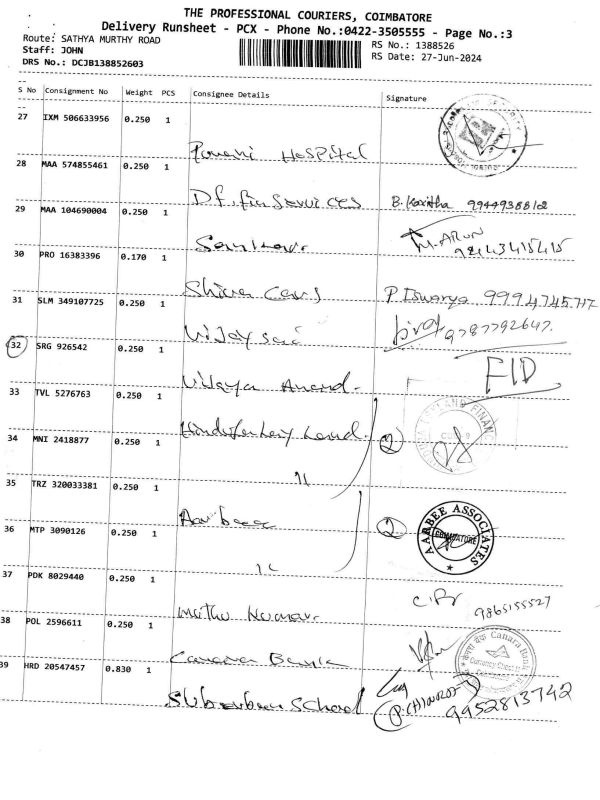 THE PROFESSIONAL COURIERS, COIMBATORE
Delivery Runsheet - PCX - Phone No.:0422-3505555 - Page No.:3
Route: SATHYA MURTHY ROAD
RS No.: 1388526
Staff: JOHN
RS Date: 27-Jun-2024
DRS No.: DCJB138852603
S No Consignment No Weight PCS Consignee Details Signature
27 IXM 506633956 0.250 1
Hospital
28 MAA 574855461 0.250 1
Services B. Kavitha
29 MAA 104690004 0.250 1
M. ARUN
30 PRO 16383396 0.170 1
Shiva Cars P Iswarya 9994745717
31 SLM 349107725 0.250 1
Vijay sai 9787792647
32 SRG 926542 0.250 1
Vijaya Anand. FID
33 TVL 5276763 0.250 1
2
34 MNI 2418877 0.250 1
11
35 TRZ 320033381 0.250 1
Aarbee 2 AARBEE ASSOCIATES COIMBATORE
36 MTP 3090126 0.250 1
11
37 PDK 8029440 0.250 1
Muthu Kumar. 9865155527
38 POL 2596611 0.250 1
Canara Bank Canara Bank
39 HRD 20547457 0.830 1
Suburban School 9952813742